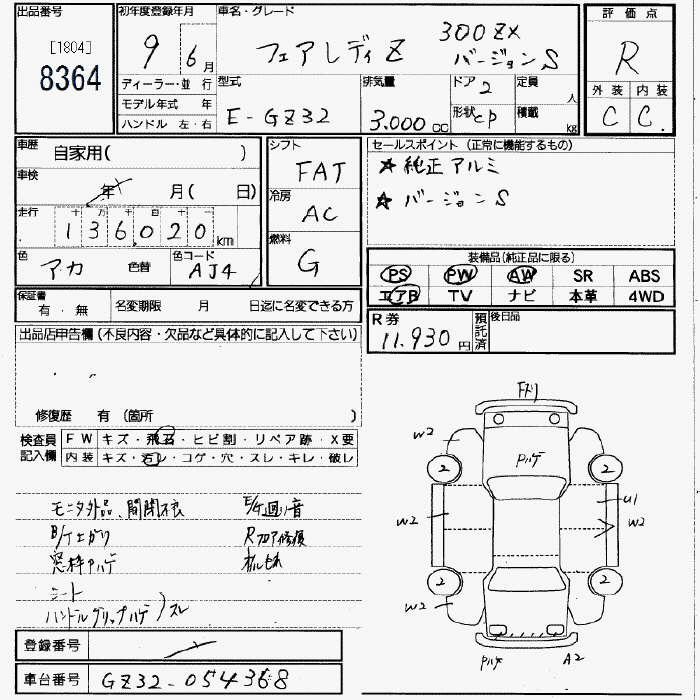 出品番号
[1804]
8364
初年度登録年月
9 6月
ディーラー・並 行
モデル年式 年
ハンドル 左・右
車名・グレード
フェアレディZ 300ZX
バージョンS
型式
E-GZ32
排気量
3.000cc
ドア 2
形状 CP
定員 人
積載 kg
評価点
R
外装 内装
C C.
車歴
自家用( )
車検
年 月( 日)
走行 十 万 千 百 十 一
136,020 km
色 アカ 色替
色コード AJ4
シフト
FAT
冷房
AC
燃料
G
セールスポイント (正常に機能するもの)
★ 純正アルミ
★ バージョンS
装備品(純正品に限る)
PS PW AW SR ABS
エアB TV ナビ 本革 4WD
保証書
有・無
名変期限 月 日迄に名変できる方
R券
11.930円
預託済
後日品
出品店申告欄(不良内容・欠品など具体的に記入して下さい)
修復歴 有(箇所 )
検査員記入欄
FW キズ・飛石・ヒビ割・リペア跡・X要
内装 キズ・汚レ・コゲ・穴・スレ・キレ・破レ
モニタ外品、開閉不良
E/G廻り音
窓枠ハゲ
Rフロア修復
シート
ハンドルグリップハゲ スレ
登録番号
車台番号 GZ32-054368
W2
ハゲ
2
2
W2
U1
W2
2
2
W2
ハゲ
A2